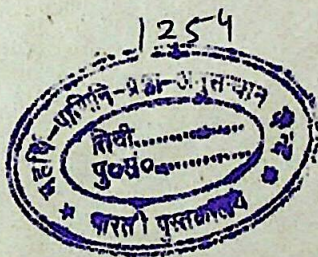 1254
महर्षि-पाणिनि-प्रज्ञा-अनुसन्धान केन्द्र
तिथी..............
पु०सं०..............
★ भारती पुस्तकालय ★